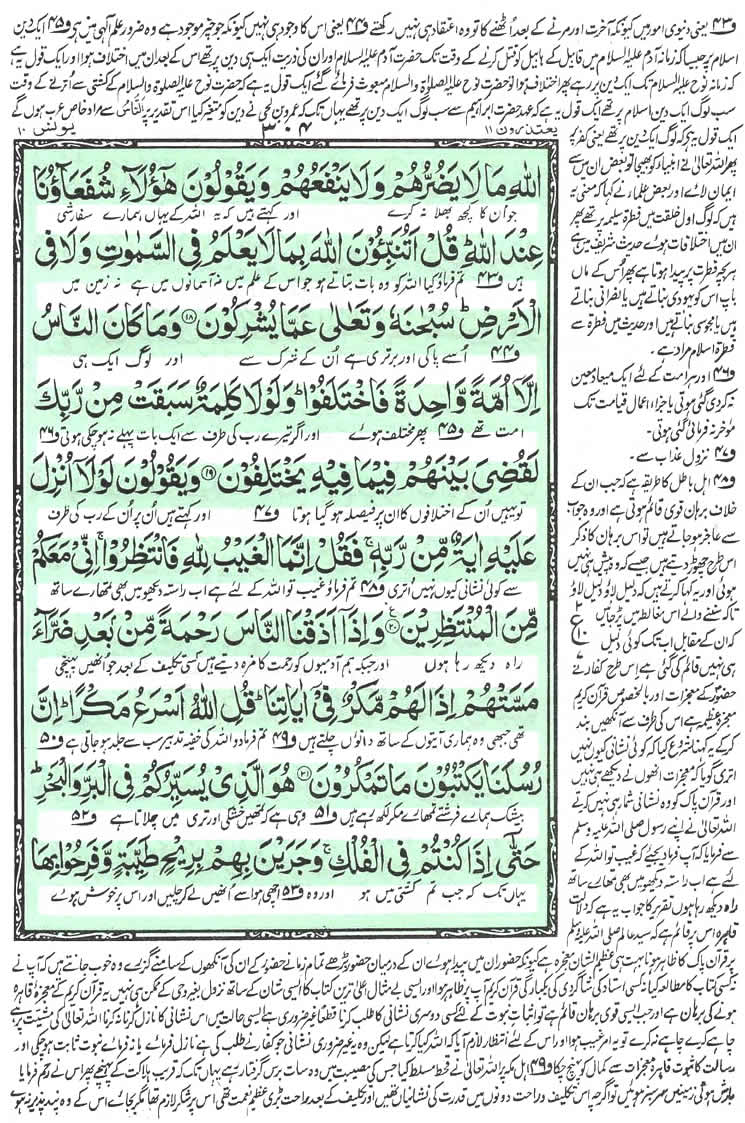 و۴۳ یعنی دنیوی امور میں کیونکہ آخرت اور مرنے کے بعد اُٹھنے کا تو وہ اعتقاد ہی نہیں رکھتے و۴۴ یعنی اس کا وجود ہی نہیں کیونکہ جو چیز موجود ہے وہ ضرور علم الٰہی میں ہے و۴۵ ایک دین
اسلام پر جیسا کہ زمانہ آدم علیہ السلام میں قابیل کے ہابیل کو قتل کرنے کے وقت تک حضرت آدم علیہ السلام اور ان کی ذریت ایک ہی دین پر تھے اس کے بعد ان میں اختلاف ہوا اور ایک قول یہ ہے
کہ زمانہ نوح علیہ السلام تک ایک دین پر رہے پھر اختلاف ہوا تو حضرت نوح علیہ الصلوٰۃ والسلام مبعوث فرمائے گئے ایک قول یہ ہے کہ حضرت نوح علیہ الصلوٰۃ والسلام کے کشتی سے اُترنے کے وقت
سب لوگ ایک دین اسلام پر تھے ایک قول یہ ہے کہ عہد حضرت ابراہیم سے سب لوگ ایک دین پر تھے یہاں تک کہ عمرو بن لحی نے دین کو متغیر کیا اس تقدیر پر النَّاسُ سے مراد خاص عرب ہوں گے
یعتذرون ۱۱ ۳۰۴ یونس ۱۰
اللّٰهِ مَا لَا يَضُرُّهُمْ وَلَا يَنْفَعُهُمْ وَيَقُوْلُوْنَ هٰٓؤُلَآءِ شُفَعَآؤُنَا
جو اُن کا کچھ بھلا نہ کرے اور کہتے ہیں کہ یہ اللہ کے یہاں ہمارے سفارشی
عِنْدَ اللّٰهِ ؕ قُلْ اَتُنَبِّـُٔوْنَ اللّٰهَ بِمَا لَا يَعْلَمُ فِى السَّمٰوٰتِ وَلَا فِى
ہیں و۴۳ تم فرماؤ کیا اللہ کو وہ بات بتاتے ہو جو اس کے علم میں نہ آسمانوں میں ہے نہ زمین میں
الْاَرْضِ ؕ سُبْحٰنَهٗ وَتَعٰلٰى عَمَّا يُشْرِكُوْنَ ﴿۱۸﴾ وَمَا كَانَ النَّاسُ
و۴۴ اُسے پاکی اور برتری ہے اُن کے شرک سے اور لوگ ایک ہی
اِلَّاۤ اُمَّةً وَّاحِدَةً فَاخْتَلَفُوْا ؕ وَلَوْلَا كَلِمَةٌ سَبَقَتْ مِنْ رَّبِّكَ
امت تھے و۴۵ پھر مختلف ہوئے اور اگر تیرے رب کی طرف سے ایک بات پہلے نہ ہو چکی ہوتی و۴۶
لَقُضِىَ بَيْنَهُمْ فِيْمَا فِيْهِ يَخْتَلِفُوْنَ ﴿۱۹﴾ وَيَقُوْلُوْنَ لَوْلَاۤ اُنْزِلَ
تو یہیں اُن کے اختلافوں کا ان پر فیصلہ ہو گیا ہوتا و۴۷ اور کہتے ہیں اُن پر اُن کے رب کی طرف
عَلَيْهِ اٰيَةٌ مِّنْ رَّبِّهٖ ۚ فَقُلْ اِنَّمَا الْغَيْبُ لِلّٰهِ فَانْتَظِرُوْا ۚ اِنِّىْ مَعَكُمْ
سے کوئی نشانی کیوں نہیں اُتری و۴۸ تم فرماؤ غیب تو اللہ کے لئے ہے اب راستہ دیکھو میں بھی تمہارے ساتھ
مِّنَ الْمُنْتَظِرِيْنَ ﴿۲۰﴾ وَاِذَاۤ اَذَقْنَا النَّاسَ رَحْمَةً مِّنْۢ بَعْدِ ضَرَّآءَ
راہ دیکھ رہا ہوں اور جبکہ ہم آدمیوں کو رحمت کا مزہ دیتے ہیں کسی تکلیف کے بعد جو انھیں پہنچی
مَسَّتْهُمْ اِذَا لَهُمْ مَّكْرٌ فِىْۤ اٰيَاتِنَا ؕ قُلِ اللّٰهُ اَسْرَعُ مَكْرًا ؕ اِنَّ
تھی جبھی وہ ہماری آیتوں کے ساتھ دانوں چلتے ہیں و۴۹ تم فرمادو اللہ کی خفیہ تدبیر سب سے جلد ہو جاتی ہے و۵۰
رُسُلَنَا يَكْتُبُوْنَ مَا تَمْكُرُوْنَ ﴿۲۱﴾ هُوَ الَّذِىْ يُسَيِّرُكُمْ فِى الْبَرِّ وَالْبَحْرِ ؕ
بیشک ہمارے فرشتے تمہارے مکر لکھ رہے ہیں و۵۱ وہی ہے کہ تمھیں خشکی اور تری میں چلاتا ہے و۵۲
حَتّٰۤى اِذَا كُنْتُمْ فِى الْفُلْكِ ۚ وَجَرَيْنَ بِهِمْ بِرِيْحٍ طَيِّبَةٍ وَّفَرِحُوْا بِهَا
یہاں تک کہ جب تم کشتی میں ہو اور وہ و۵۳ اچھی ہوا سے اُنھیں لے کر چلیں اور اس پر خوش ہوئے
ایک قول یہ ہے کہ لوگ ایک دین پر تھے یعنی کفر پر
پھر اللہ تعالیٰ نے انبیاء کو بھیجا تو بعض ان میں سے
ایمان لائے اور بعض علماء نے کہا کہ معنی یہ
ہیں کہ لوگ اول خلقت میں فطرۃ سلیمہ پر تھے پھر
ان میں اختلافات ہوئے حدیث شریف میں ہے
ہر بچہ فطرت پر پیدا ہوتا ہے پھر اس کے ماں
باپ اس کو یہودی بناتے ہیں یا نصرانی بناتے
ہیں یا مجوسی بناتے ہیں اور حدیث میں فطرۃ سے
فطرۃ اسلام مراد ہے۔
و۴۶ اور ہر امت کے لئے ایک میعاد معین
نہ کر دی گئی ہوتی یا جزاء اعمال قیامت تک
مؤخر نہ فرمائی گئی ہوتی۔
و۴۷ نزول عذاب سے۔
و۴۸ اہل باطل کا طریقہ ہے کہ جب ان کے
خلاف برہان قوی قائم ہوتی ہے اور وہ جواب
سے عاجز ہو جاتے ہیں تو اس برہان کا ذکر
اس طرح چھوڑ دیتے ہیں جیسے کہ وہ پیش ہی نہیں
ہوئی اور یہ کہا کرتے ہیں کہ دلیل لاؤ دلیل لاؤ
تاکہ سننے والے اس مغالطہ میں پڑ جائیں
کہ ان کے مقابل اب تک کوئی دلیل
ہی نہیں قائم کی گئی ہے اس طرح کفار نے
حضور کے معجزات اور بالخصوص قرآن کریم
معجزہ عظیمہ ہے اس کی طرف سے آنکھیں بند
کرکے یہ کہنا شروع کیا کہ کوئی نشانی کیوں نہیں
اتری گویا کہ معجزات انھوں نے دیکھے ہی نہیں
اور قرآن پاک کو وہ نشانی شمار ہی نہیں کرتے
اللہ تعالیٰ نے اپنے رسول صلی اللہ علیہ وسلم
سے فرمایا کہ آپ فرما دیجئے کہ غیب تو اللہ کے
لئے ہے اب راستہ دیکھو میں بھی تمہارے ساتھ
راہ دیکھ رہا ہوں تقریر کا جواب یہ ہے کہ دلالت
قاہرہ اس پر قائم ہے کہ سید عالم صلی اللہ علیہ وسلم
پر قرآن پاک کا ظاہر ہونا بہت ہی عظیم الشان معجزہ ہے کیونکہ حضور ان میں پیدا ہوئے ان کے درمیان حضور بڑھے تمام زمانے حضور کے ان کی آنکھوں کے سامنے گزرے وہ خوب جانتے ہیں کہ آپ نے
نہ کسی کتاب کا مطالعہ کیا نہ کسی استاد کی شاگردی کی یکبارگی قرآن کریم آپ پر ظاہر ہوا اور ایسی بے مثال اعلیٰ ترین کتاب کا ایسی شان کے ساتھ نزول بغیر وحی کے ممکن ہی نہیں یہ قرآن کریم کے معجزہ قاہرہ
ہونے کی برہان ہے اور جب ایسی قوی برہان قائم ہے تو اثبات نبوت کے لئے کسی دوسری نشانی کا طلب کرنا قطعًا غیر ضروری ہے ایسی حالت میں اس نشانی کا نازل کرنا نہ کرنا اللہ تعالیٰ کی مشیت پر ہے
چاہے کرے چاہے نہ کرے تو یہ امر غیب ہوا اور اس کے لئے انتظار لازم آیا کہ اللہ کیا کرتا ہے لیکن وہ یہ غیر ضروری نشانی جو کفار نے طلب کی ہے نازل فرمائے یا نہ فرمائے نبوت ثابت ہو چکی اور
رسالت کا ثبوت قاہرہ معجزات سے کمال کو پہنچ چکا و۴۹ اہل مکہ پر اللہ تعالیٰ نے قحط مسلط کیا جس کی مصیبت میں وہ سات برس گرفتار رہے یہاں تک کہ قریب ہلاکت کے پہنچے پھر اس نے رحم فرمایا
بارش ہوئی زمینیں سرسبز ہوئیں تو اگرچہ اس تکلیف و راحت دونوں میں قدرت کی نشانیاں تھیں اور تکلیف کے بعد راحت بڑی عظیم نعمت تھی اس پر شکر لازم تھا مگر بجائے اس کے وہ پند پذیر نہ ہوئے